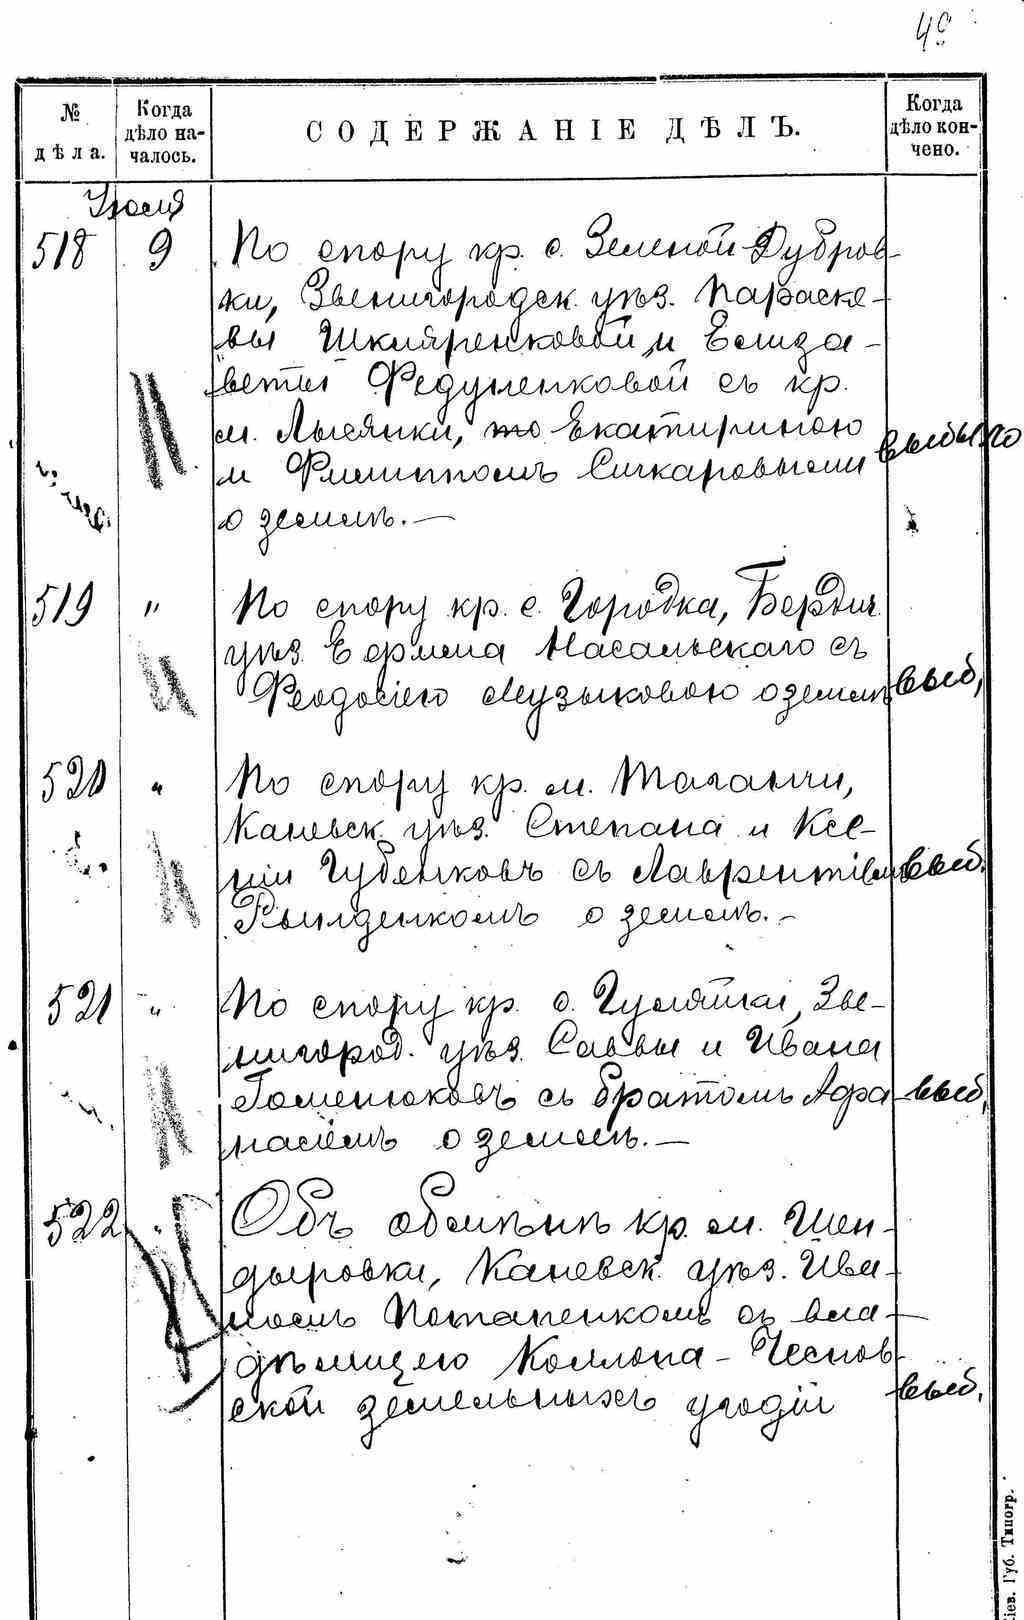 № дѣла.
Когда дѣло началось.
СОДЕРЖАНІЕ ДѢЛЪ.
Когда дѣло кончено.
518 9 По спору кр. с. Зеленой Дубров-
ки, Звенигородск. уѣз. Параске-
вы Шкляренковой и Елиза-
веты Федуненковой съ кр.
м. Лысянки, Екатериною
и Филиппомъ Сичкаровыми выбыло
о землѣ.—
519 " По спору кр. с. Городка, Бердич.
уѣз. Масальскаго съ
Феодосіею Музыковою о землѣ выб,
520 " По спору кр. м. Таганчи,
Каневск. уѣз. Степана и Ксе-
ніи Губенковъ съ Лаврентіемъ выб.
о землѣ.—
521 " По спору кр. с. Зве-
нигород. уѣз. Саввы и Ивана
Гоменюковъ съ братомъ Афа- выб,
насіемъ о землѣ.—
522 " Объ обмѣнѣ кр. м. Шен-
дыровки, Каневск. уѣз. Ива-
номъ Потапенкомъ съ вла-
дѣлицею Чеснов-
ской земельныхъ угодій выб.
Губ. Типогр.